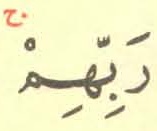 ج
رَبِّهِمْ